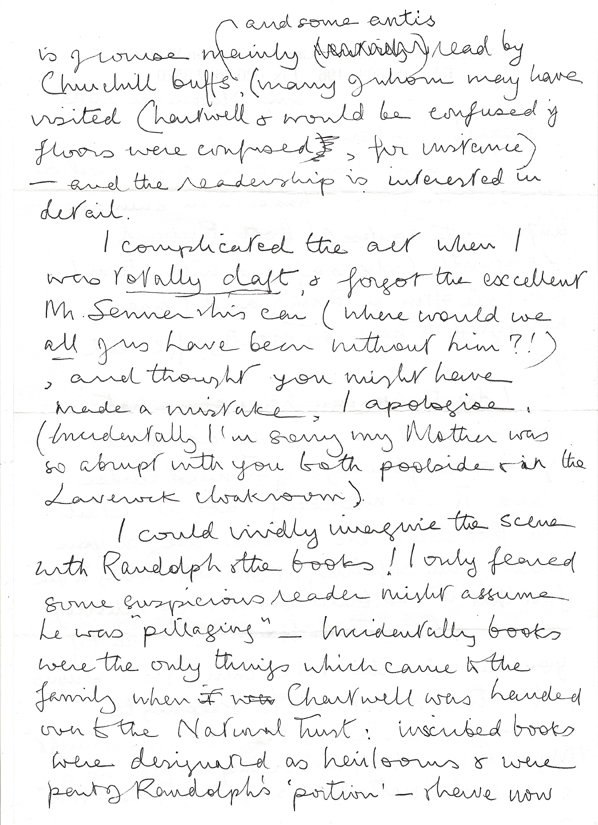 and some antis
is of course mainly read by
Churchill buffs, (many of whom may have
visited Chartwell & would be confused if
floors were confused, for instance)
— and the readership is interested in
detail.
I complicated the act when I
was totally daft, & forgot the excellent
Mr. Jenner & his car (where would we
all of us have been without him?!)
, and thought you might have
made a mistake, I apologise.
(Incidentally I'm sorry my Mother was
so abrupt with you both poolside & in the
Laverock cloakroom).
I could vividly imagine the scene
with Randolph & the books! I only feared
some suspicious reader might assume
he was "pillaging" — Incidentally books
were the only things which came to the
family when Chartwell was handed
over to the National Trust: inscribed books
were designated as heirlooms & were
part of Randolph's 'portion' — & have now